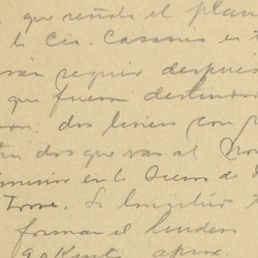 que reseña el plan
la Cia. Casasus en t
seguir despues
que fueron destinado
dos lineas con
dos que van al Nor
en la Sierra de
Torre. La longitud t
forman el lindero
9 Kmts aprox.